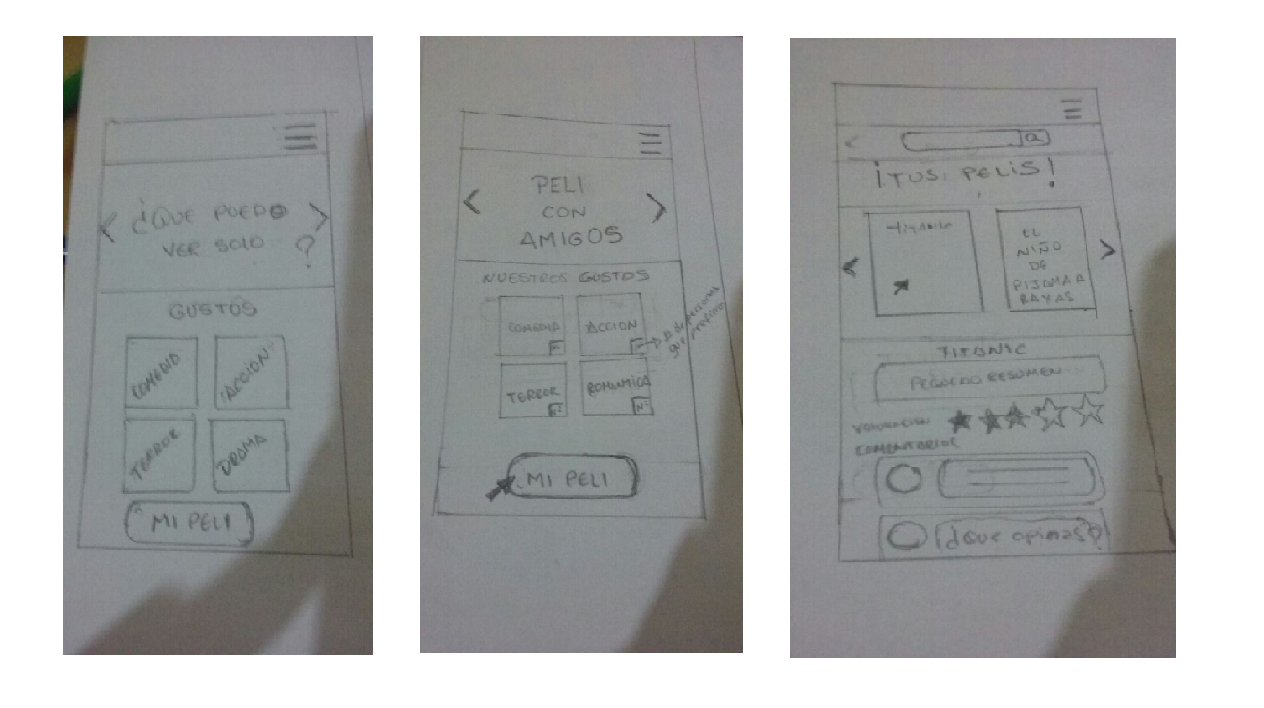 ¿QUE PUEDO
VER SOLO ?
GUSTOS
COMEDIA
ACCION
TERROR
DRAMA
MI PELI
PELI
CON
AMIGOS
NUESTROS GUSTOS
COMEDIA
ACCION
TERROR
ROMANTICA
Nº
Nº
MI PELI
¡TUS PELIS!
titanic
EL
NIÑO
DE
PIJAMA A
RAYAS
TITANIC
PEQUEÑO RESUMEN
VALORACION
COMENTARIOS
¿Que opinas?